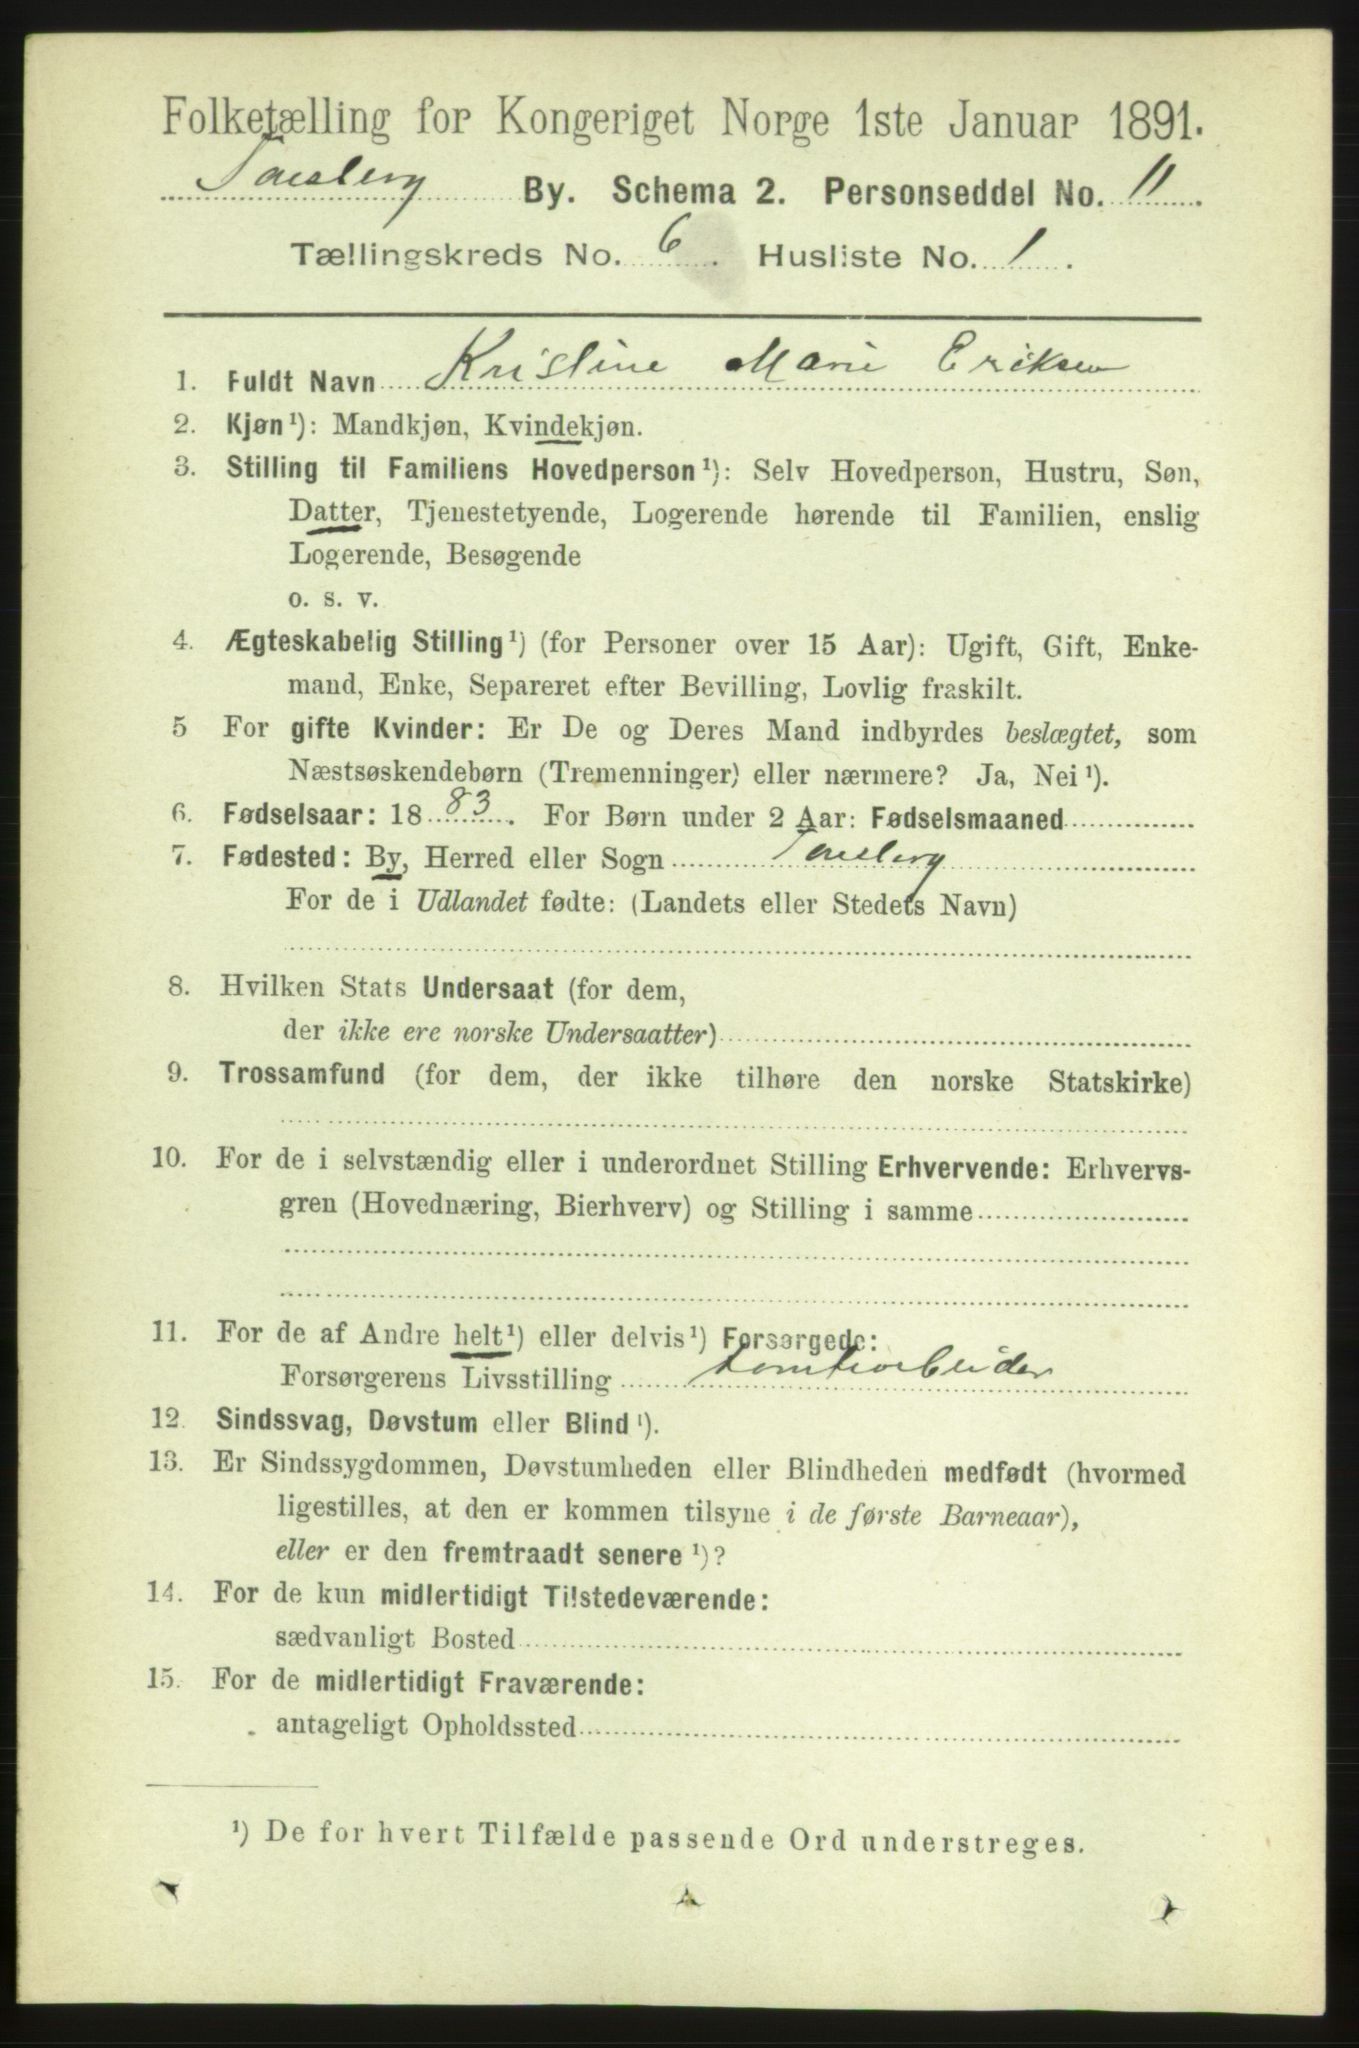 Folketælling for Kongeriget Norge 1ste Januar 1891.
Tønsberg By. Schema 2. Personseddel No. 11
Tællingskreds No. 6. Husliste No. 1.
1. Fuldt Navn Kristine Marie Eriksen
2. Kjøn¹): Mandkjøn, Kvindekjøn.
3. Stilling til Familiens Hovedperson¹): Selv Hovedperson, Hustru, Søn,
Datter, Tjenestetyende, Logerende hørende til Familien, enslig
Logerende, Besøgende
o. s. v.
4. Ægteskabelig Stilling¹) (for Personer over 15 Aar): Ugift, Gift, Enke-
mand, Enke, Separeret efter Bevilling, Lovlig fraskilt.
5 For gifte Kvinder: Er De og Deres Mand indbyrdes beslægtet, som
Næstsøskendebørn (Tremenninger) eller nærmere? Ja, Nei¹).
6. Fødselsaar: 1883. For Børn under 2 Aar: Fødselsmaaned
7. Fødested: By, Herred eller Sogn Tønsberg
For de i Udlandet fødte: (Landets eller Stedets Navn)
8. Hvilken Stats Undersaat (for dem,
der ikke ere norske Undersaatter)
9. Trossamfund (for dem, der ikke tilhøre den norske Statskirke)
10. For de i selvstændig eller i underordnet Stilling Erhvervende: Erhvervs-
gren (Hovednæring, Bierhverv) og Stilling i samme
11. For de af Andre helt¹) eller delvis¹) Forsørgede:
Forsørgerens Livsstilling tomtearbeider
12. Sindssvag, Døvstum eller Blind¹).
13. Er Sindssygdommen, Døvstumheden eller Blindheden medfødt (hvormed
ligestilles, at den er kommen tilsyne i de første Barneaar),
eller er den fremtraadt senere¹)?
14. For de kun midlertidigt Tilstedeværende:
sædvanligt Bosted
15. For de midlertidigt Fraværende:
antageligt Opholdssted
¹) De for hvert Tilfælde passende Ord understreges.